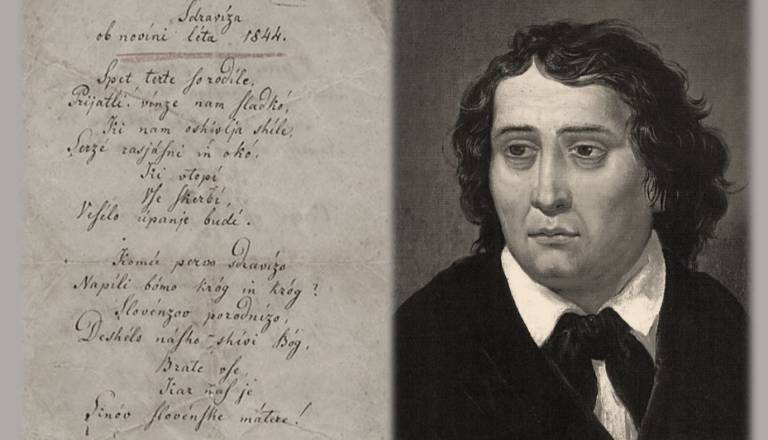 Sdravíza
ob novíni léta 1844.
Spet terte so rodile,
Prijatli! vínze nam sladkó,
Ki nam oshivlja shíle,
Serzé rasjásni in okó,
Ki vtopí
Vse skerbí,
Vesélo úpanje budí.
Komú pervo sdravízo
Napíli bómo króg in króg?
Slovénzov porodnízo,
Deshélo násho shívi Bóg,
Brate vse,
Kar nas je
Sinóv slovénske mátere!